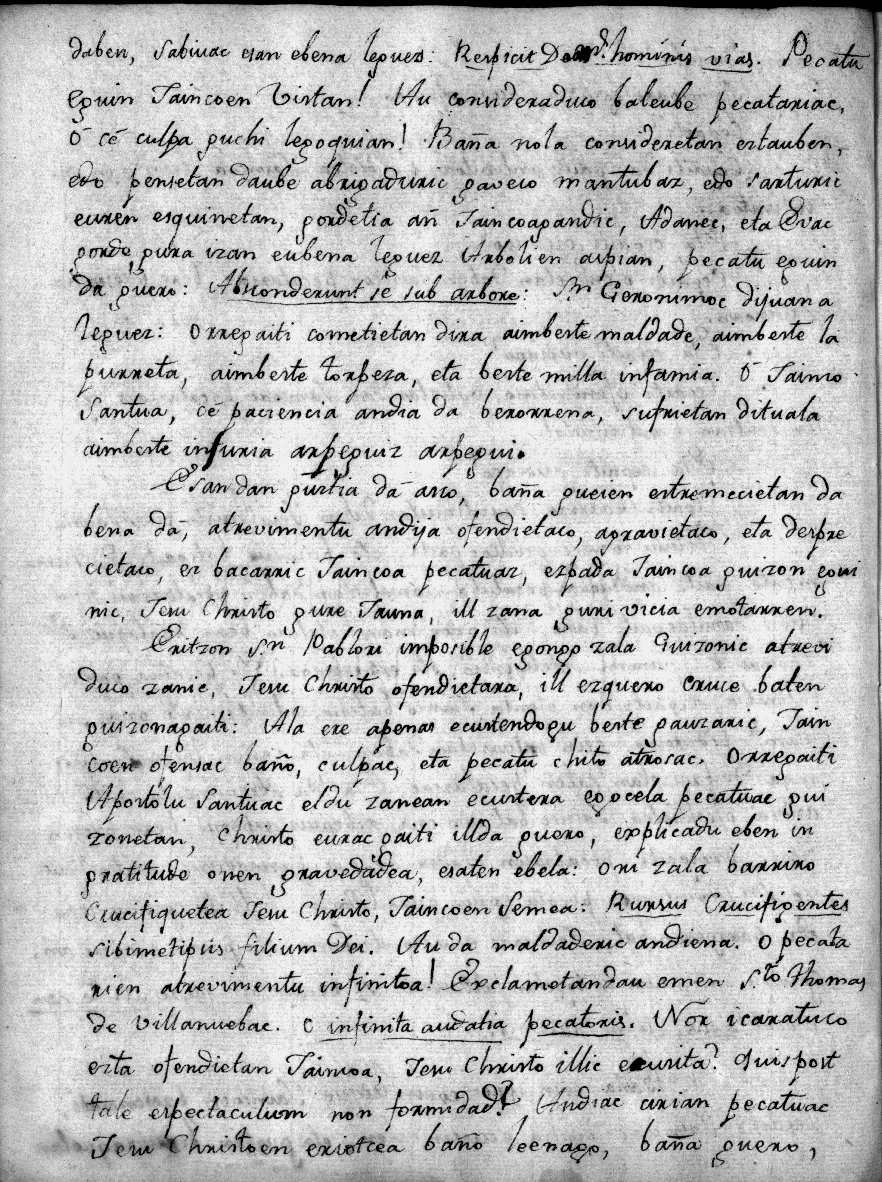 daben, Sabiuac esan ebena leguez: Respicit Dom.s hominis vias. Pecatu
eguin Taincoen Vistan! Au consideraduco baleube pecatariac,
ó cé culpa guchi legoquian! Baña nola consideretan eztauben,
edo pensetan daube abrigaduric gaveco mantubaz, edo sarturic
euren esquinetan, gordetia añ Taincoagandic, Adanec, eta Evac
gorde gura izan eubena leguez Arbolien azpian, pecatu eguin
da guero: Absconderunt se sub arbore: S.n Geronimoc dijuana
leguez: Orregaiti cometietan dira aimbeste maldade, aimbeste la
purreta, aimbeste torpeza, eta beste milla infamia. ó Tainco
Santua, cé paciencia andia da berorrena, sufrietan dituala
aimbeste infuria arpeguiz arpegui.
Esan dan guztia da asco, baña gueien estremecietan da
bena da, atrevimentu andija ofendietaco, agravietaco, eta despre
cietaco, ez bacarric Taincoa pecatuaz, ezpada Taincoa guizon egui
nic, Jesu Christo gure Jauna, ill zana guri vicia emotarren.
Eritzon S.n Pablori imposible egongo zala Guizonic atrevi
duco zanic, Jesu Christo ofendietara, ill ezquero cruce baten
guizonagaiti: Ala ere apenas ecustendogu beste gauzaric, Tain
coen ofensac baño, culpac, eta pecatu chito atrosac. Orregaiti
Apostolu Santuac eldu zanean ecustera egocela pecatuac gui
zonetan, Christo eurac gaiti illda guero, explicadu eben in
gratitude onen gravedadea, esaten ebela: Ori zala barriro
Crucifiquetea Jesu Christo, Taincoen Semea: Rursus Crucifigentes
sibimetipsis filium Dei. Au da maldaderic andiena. O pecata
rien atrevimentu infinitoa! Exclametandau emen S.to Thomas
de Villanuebac. O infinita audatia pecatoris. Nor icaratuco
ezta ofendietan Taincoa, Jesu Christo illic ecusita? Quis post
tale espectaculum non formidad? Andiac cirian pecatuac
Jesu Christoen eriotcea baño leenago, baña guero,